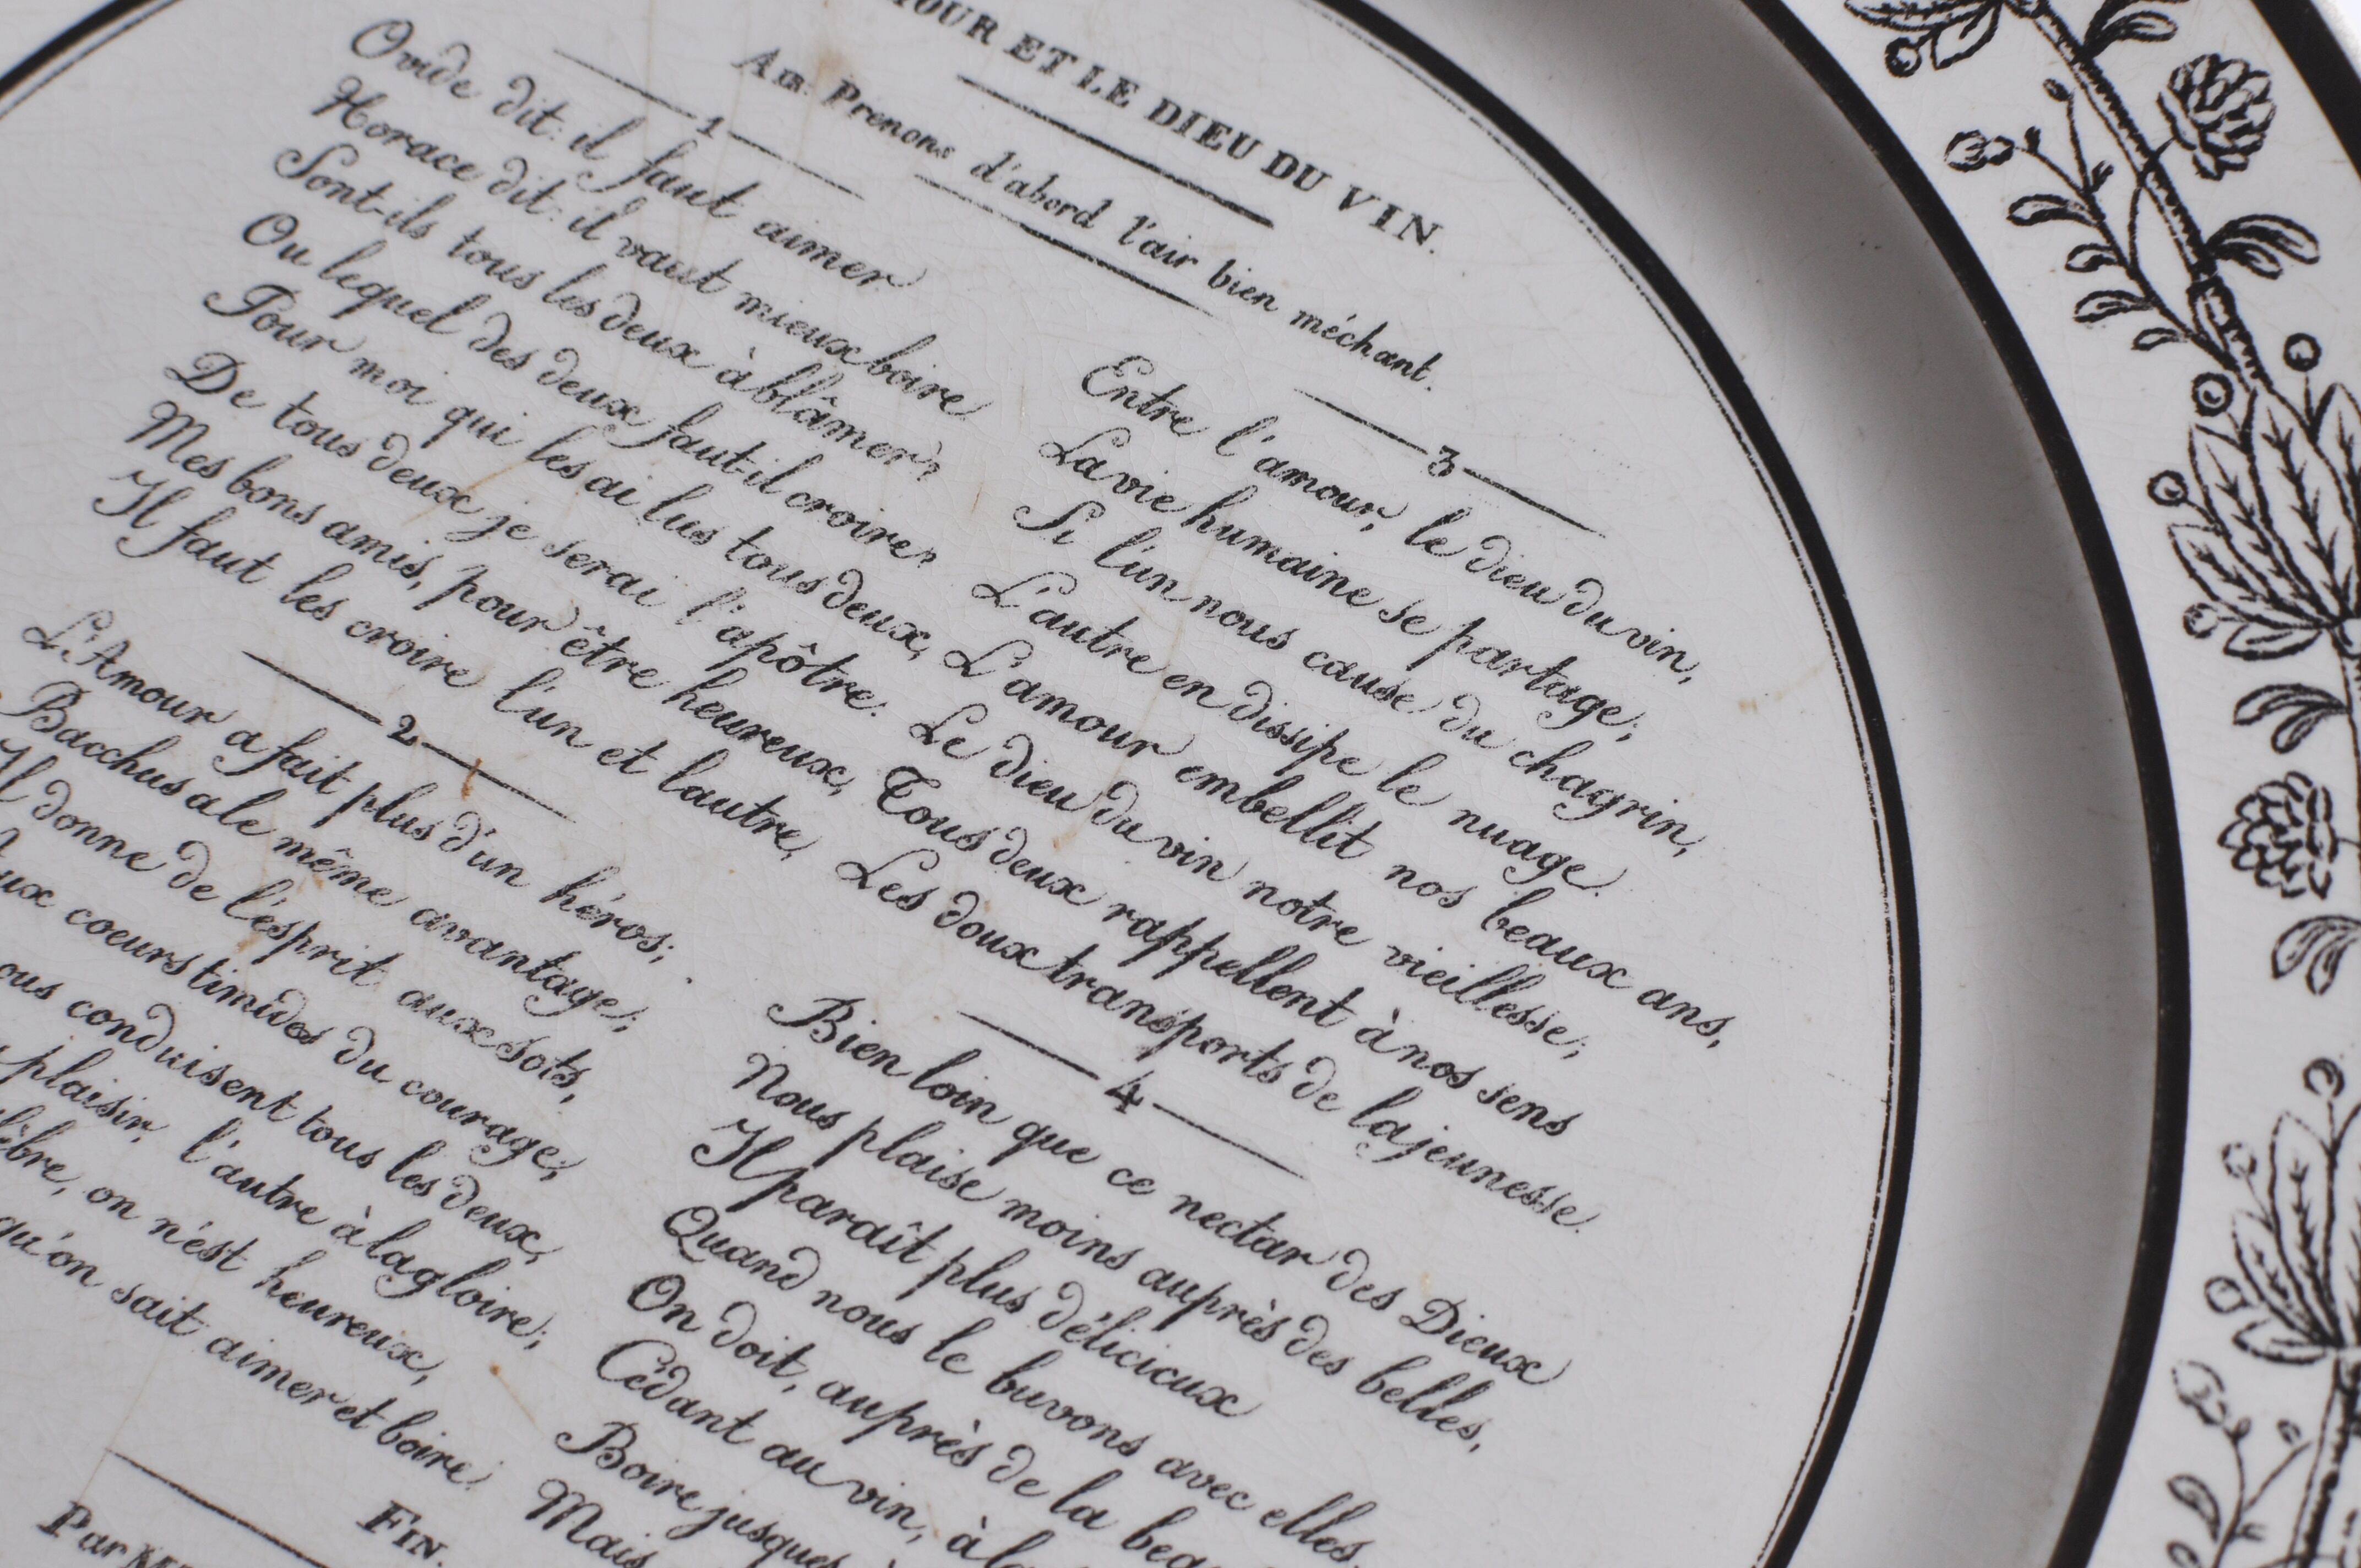 ET LE DIEU DU VIN.
AIR: Prenons d'abord l'air bien méchant.
1
Ovide dit: il faut aimer
Horace dit: il vaut mieux boire
Sont-ils tous les deux à blâmer?
Ou lequel des deux faut-il croire?
Pour moi qui les ai lus tous deux,
De tous deux je serai l'apôtre.
Mes bons amis, pour être heureux,
Il faut les croire l'un et lautre,
2
L'Amour a fait plus d'un héros;
Bacchus a le même avantage;
Il donne de l'esprit aux sots,
coeurs timides du courage;
conduisent tous les deux,
plaisir, l'autre à la gloire;
on n'est heureux,
qu'on sait aimer et boire.
3
Entre l'amour, le dieu du vin,
La vie humaine se partage;
Si l'un nous cause du chagrin,
L'autre en dissipe le nuage.
L'amour embellit nos beaux ans,
Le dieu du vin notre vieillesse;
Tous deux rappellent à nos sens
Les doux transports de la jeunesse.
4
Bien loin que ce nectar des Dieux
Nous plaise moins auprès des belles,
Il paraît plus délicieux
Quand nous le buvons avec elles.
On doit, auprès de la
Cédant au vin,
Boire jusques
Mais
FIN.
Par